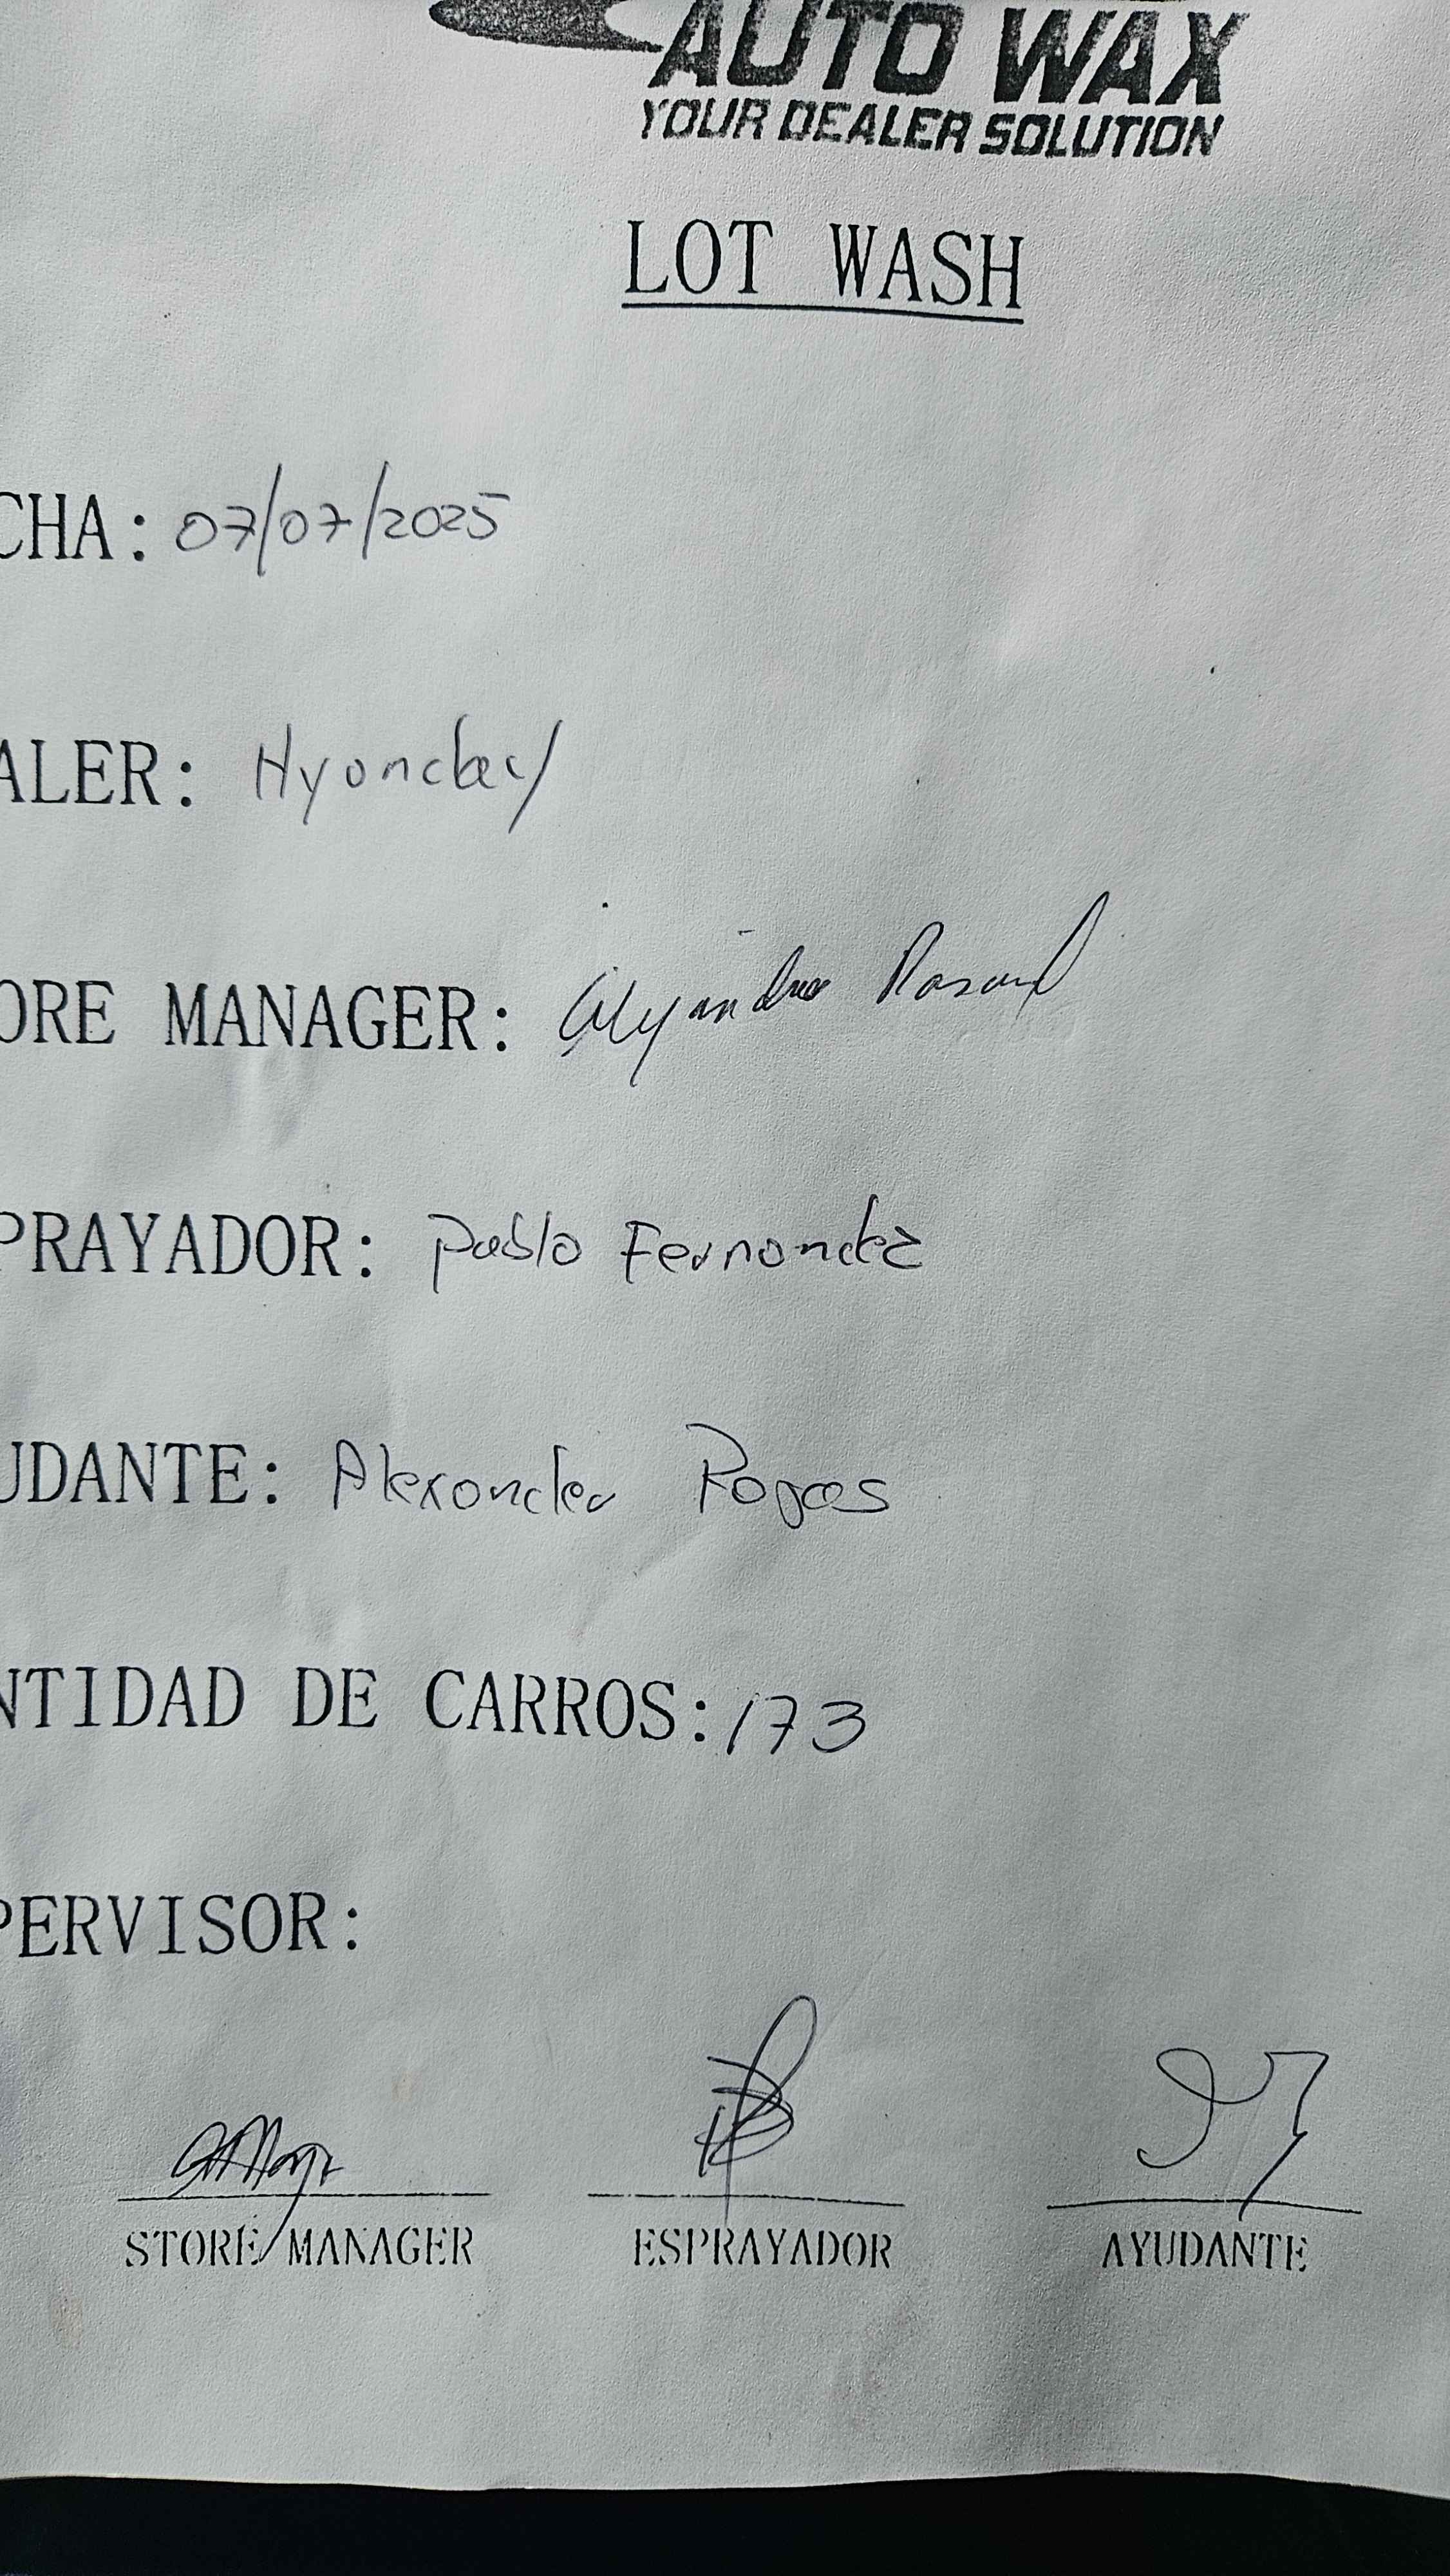 AUTO WAX
YOUR DEALER SOLUTION
LOT WASH
CHA: 07/07/2025
ALER: Hyonday
ORE MANAGER: Alejandro
PRAYADOR: Pablo Fernandez
UDANTE: Alexander Rojas
NTIDAD DE CARROS: 173
PERVISOR:
STORE MANAGER ESPRAYADOR AYUDANTE